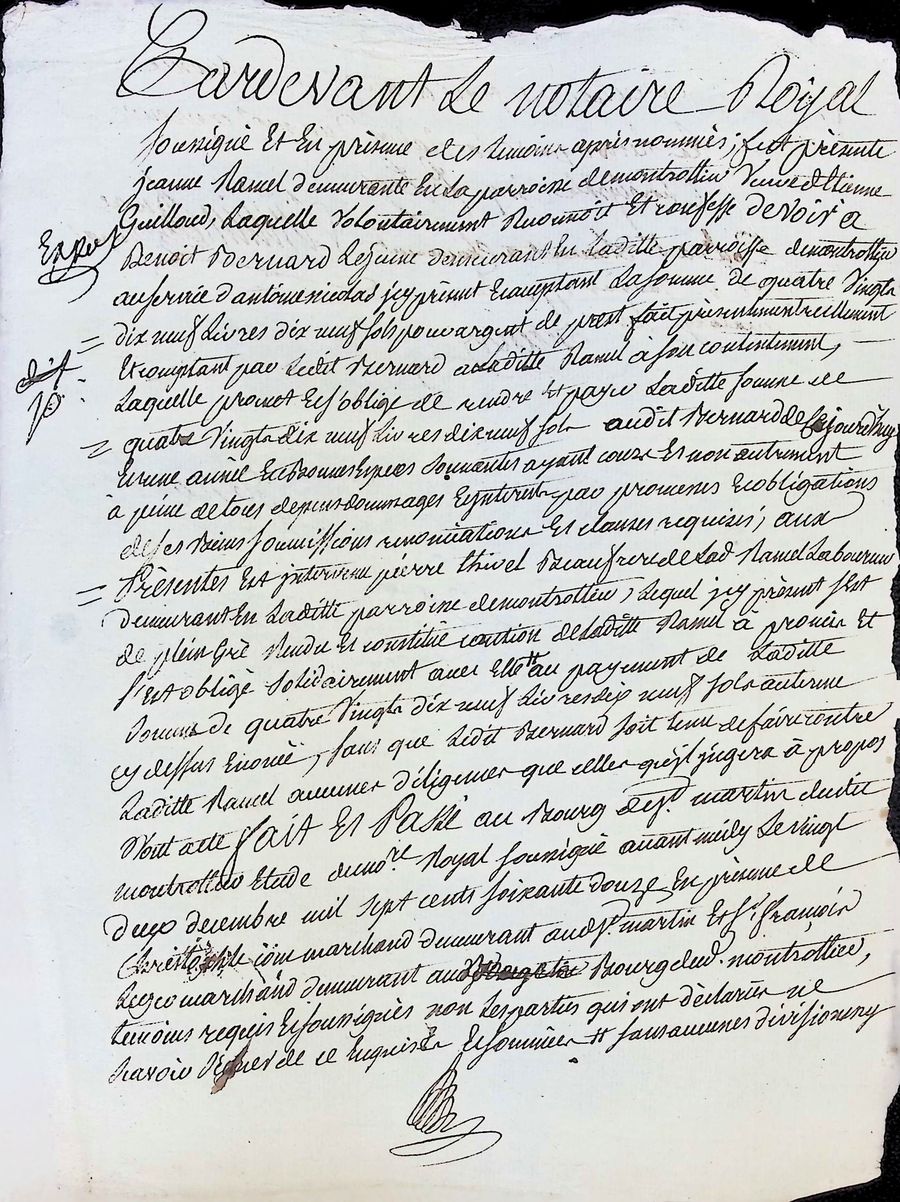 Pardevant Le notaire Royal
soussigné Et En présence des temoins après nommés, fut présente
jeanne Ramel demeurante En La parroisse demontrottier Veuve d'Etienne
Guilloud, Laquelle volontairement Reconnoit Et confesse devoir a
Exped
Benoit Bernard Lejeune demeurant En Laditte parroisse demontrottier
au service d'antoine nicolas jcy présent Ecceptant La somme de quatre Vingts
dix neuf Livres dix neuf sols pour argent de prest fait présentement réellement
Et comptant par Ledit Bernard aLaditte Ramel à son contentement,
Laquelle promet Et s'oblige de rendre Et payer Laditte somme de
quatre Vingts dix neuf Livres dix neuf sols audit Bernard de cejourd'huy
En une année En Bonnes Especes sonnantes ayant cours Et non autrement
à peine de tous depens dommages Et jnterests par promesses Et obligations
de ses Biens soumissions renonciations Et clauses requises; aux
Présentes Est jntervenu pierre thivel Beaufrere de Lad. Ramel Laboureur
demeurant En Laditte parroisse demontrottier, Lequel jcy présent s'est
de plein Gré Rendu Et constitué caution de Laditte Ramel à promis Et
s'est obligé solidairement avec Elle # au payement de Laditte
somme de quatre Vingts dix neuf Livres dix neuf sols au terme
cy dessus Enoncé, sans que Ledit Bernard soit tenu de faire contre
Laditte Ramel aucunes diligences que celles qu'il jugera à propos
Dont acte fait Et Passé au Bourg de St. martin dudit
montrottier Etude dunore. Royal soussigné avant midy Le vingt
deux decembre mil sept cents soixante douze En présence de
Christophe marchand demeurant aud. St. martin Et Sr. françois
marchand demeurant au Bourg dud. montrottier,
temoins requis Et soussignés non Les parties qui ont déclarées ne
scavoir signer de ce Enquises Et sommées # sans aucunes division ny